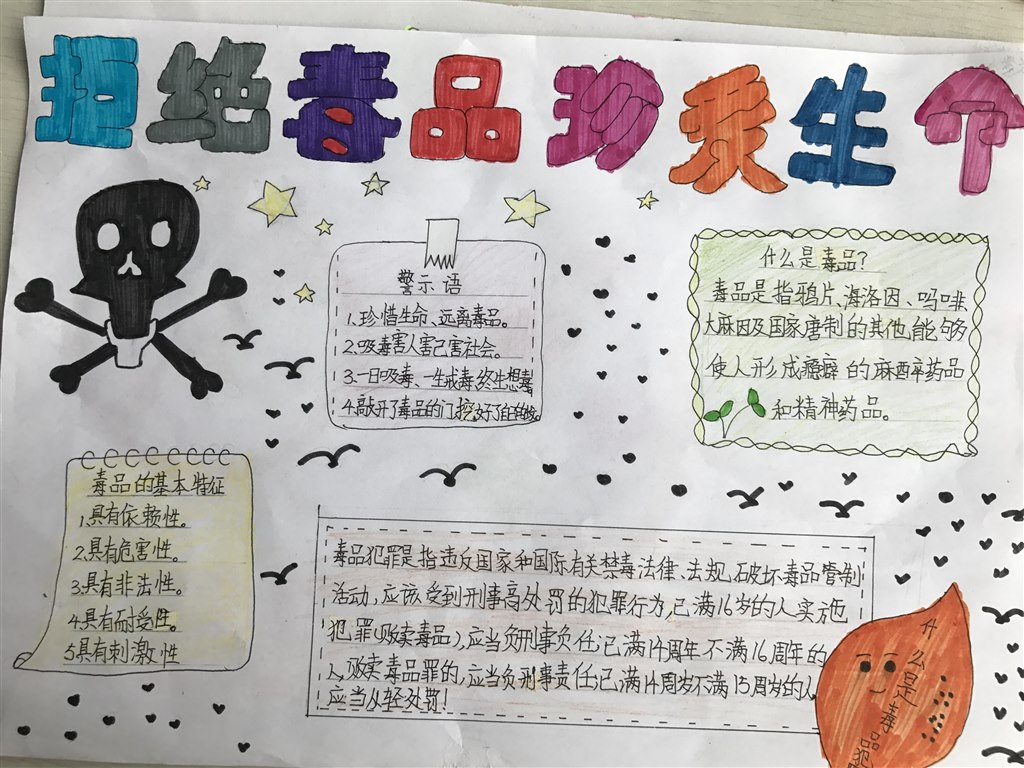 拒绝毒品珍爱生命
警示语
1.珍惜生命、远离毒品。
2.吸毒害人害己害社会。
3.一日吸毒、一生戒毒终生想毒
4.敲开了毒品的门,挖好了自
什么是毒品?
毒品是指鸦片、海洛因、吗啡
大麻因及国家唐制的其他,能够
使人形成瘾癖的麻醉药品
和精神药品。
毒品的基本特征
1.具有依赖性。
2.具有危害性。
3.具有非法性。
4.具有耐受性。
5具有刺激性
毒品犯罪是指违反国家和国际有关禁毒法律、法规,破坏毒品管制
活动,应该受到刑事高处罚的犯罪行为,已满16岁的人实施
犯罪(贩卖毒品),应当负刑事负任;已满14周年不满16周年的
人,贩卖毒品罪的,应当负刑事责任;已满14周岁不满15周岁的人
应当从轻处罚!
什么是毒品犯